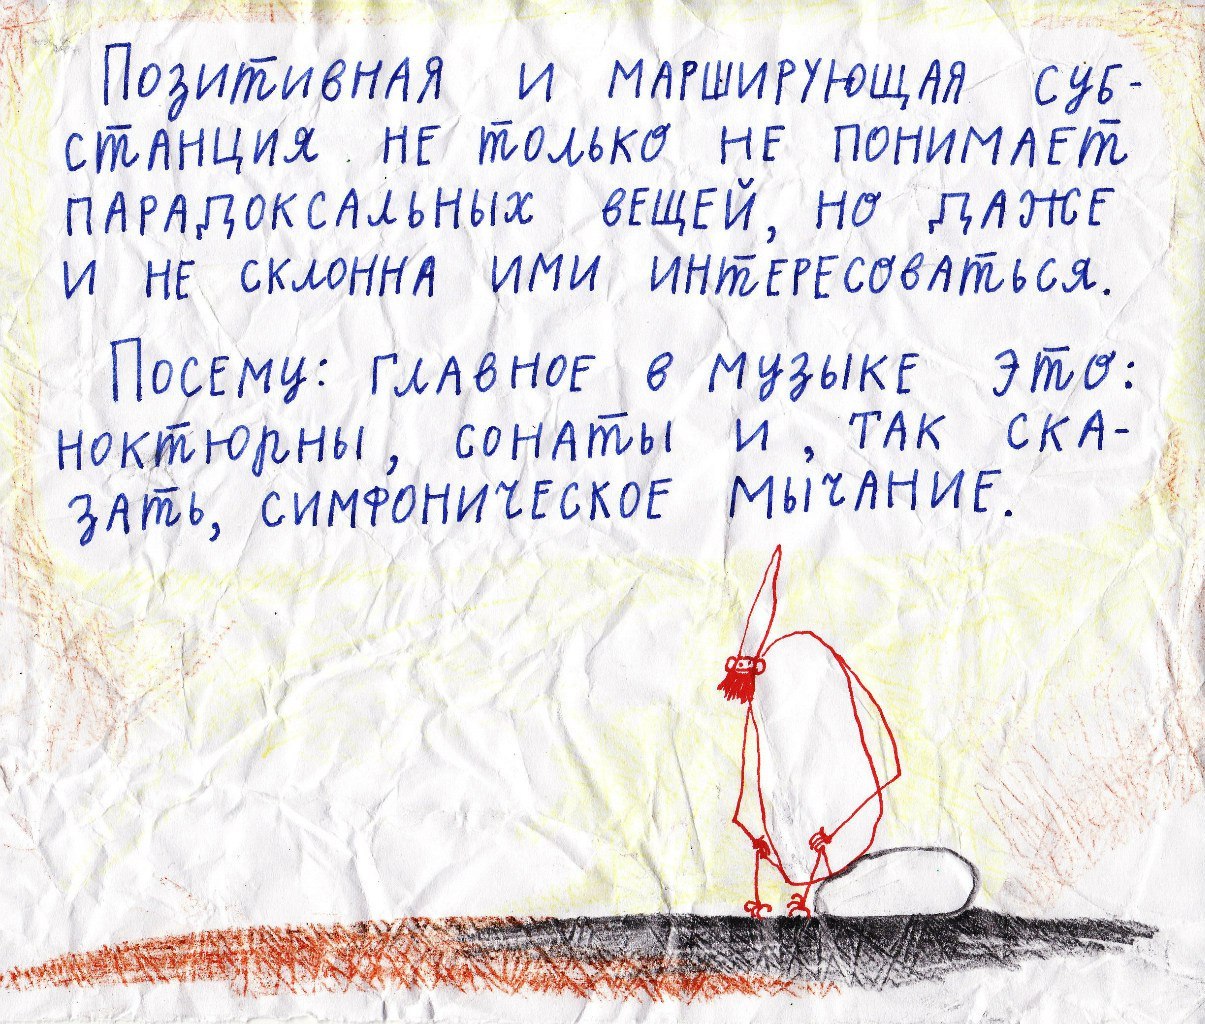 Позитивная и марширующая суб-
станция не только не понимает
парадоксальных вещей, но даже
и не склонна ими интересоваться.
Посему: главное в музыке это:
ноктюрны, сонаты и, так ска-
зать, симфоническое мычание.